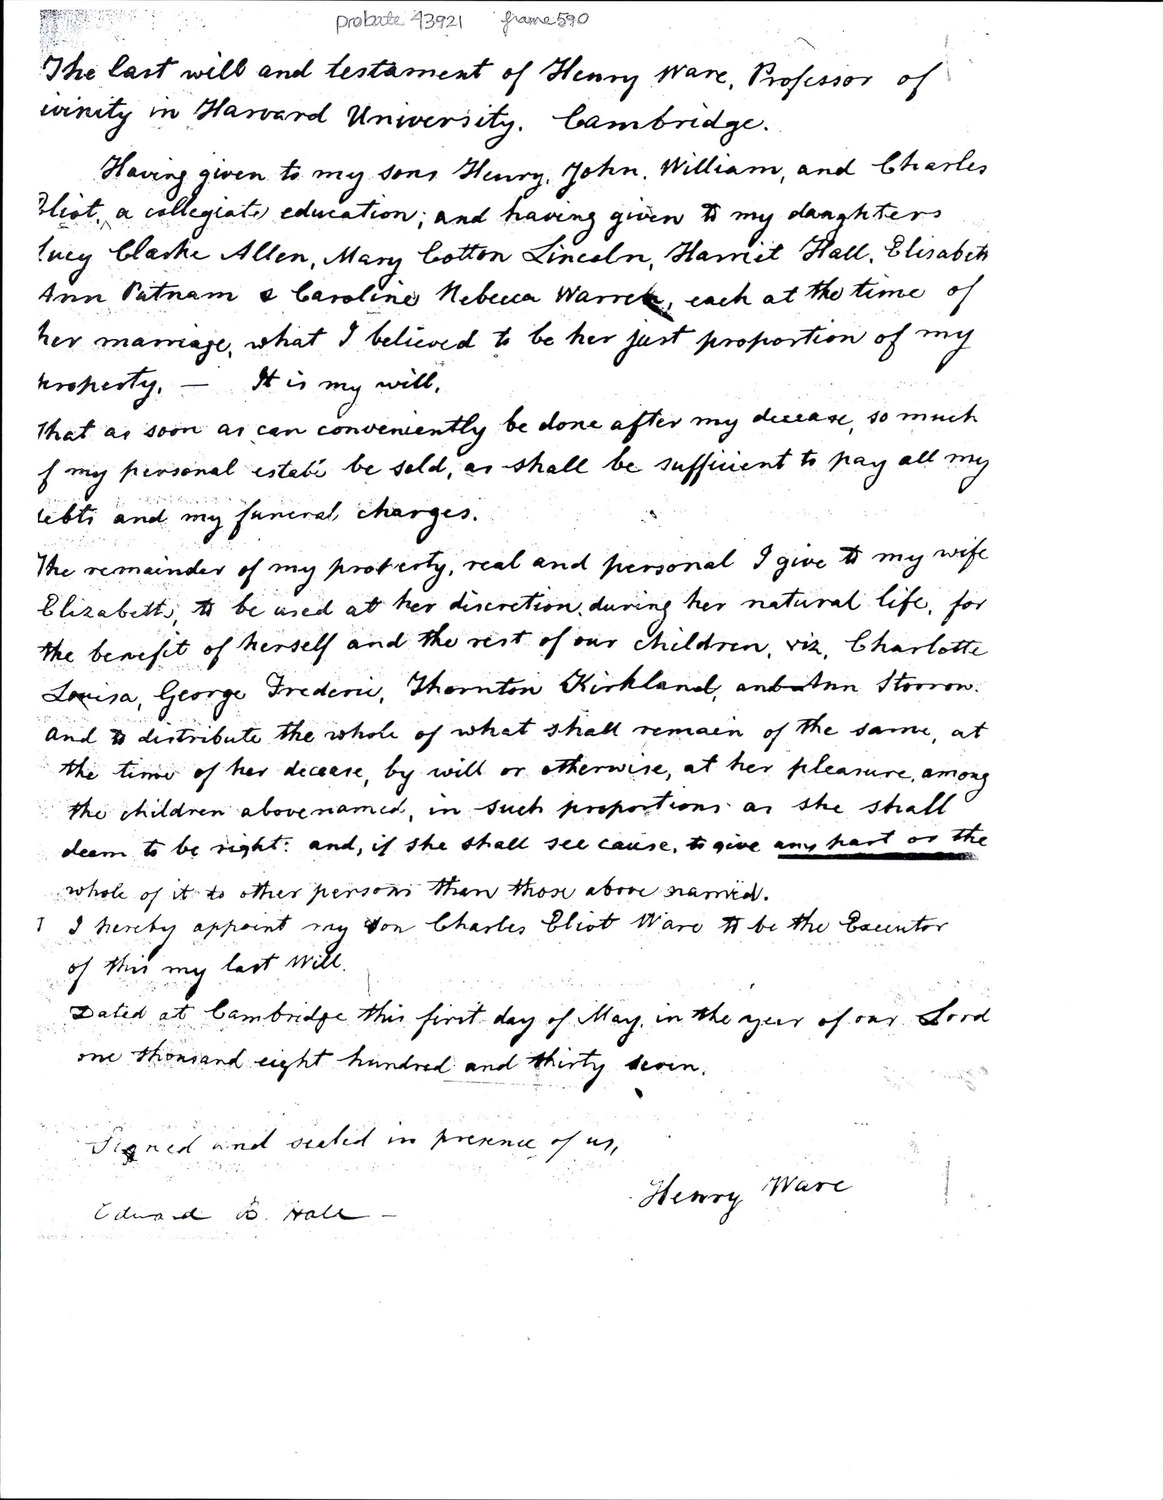 probate 43921 frame 590
The last will and testament of Henry Ware, Professor of
ivinity in Harvard University. Cambridge.
Having given to my sons Henry, John, William, and Charles
Eliot, a collegiate education; and having given to my daughters
Lucy Clarke Allen, Mary Cotton Lincoln, Harriet Hall, Elizabeth
Ann Putnam & Caroline Rebecca Warren, each at the time of
her marriage, what I believed to be her just proportion of my
property. — It is my will,
That as soon as can conveniently be done after my decease, so much
f my personal estate be sold, as shall be sufficient to pay all my
debts and my funeral charges.
The remainder of my property, real and personal I give to my wife
Elizabeth, to be used at her discretion, during her natural life, for
the benefit of herself and the rest of our children, viz, Charlotte
Louisa, George Frederic, Thornton Kirkland, and Ann Storrow.
And to distribute the whole of what shall remain of the same, at
the time of her decease, by will or otherwise, at her pleasure, among
the children above named, in such proportions as she shall
deem to be right: and, if she shall see cause, to give any part or the
whole of it to other persons than those above named.
I hereby appoint my son Charles Eliot Ware to be the Executor
of this my last Will.
Dated at Cambridge this first day of May, in the year of our Lord
one thousand eight hundred and thirty seven.
Signed and sealed in presence of us,
Henry Ware
Edward B. Hall —